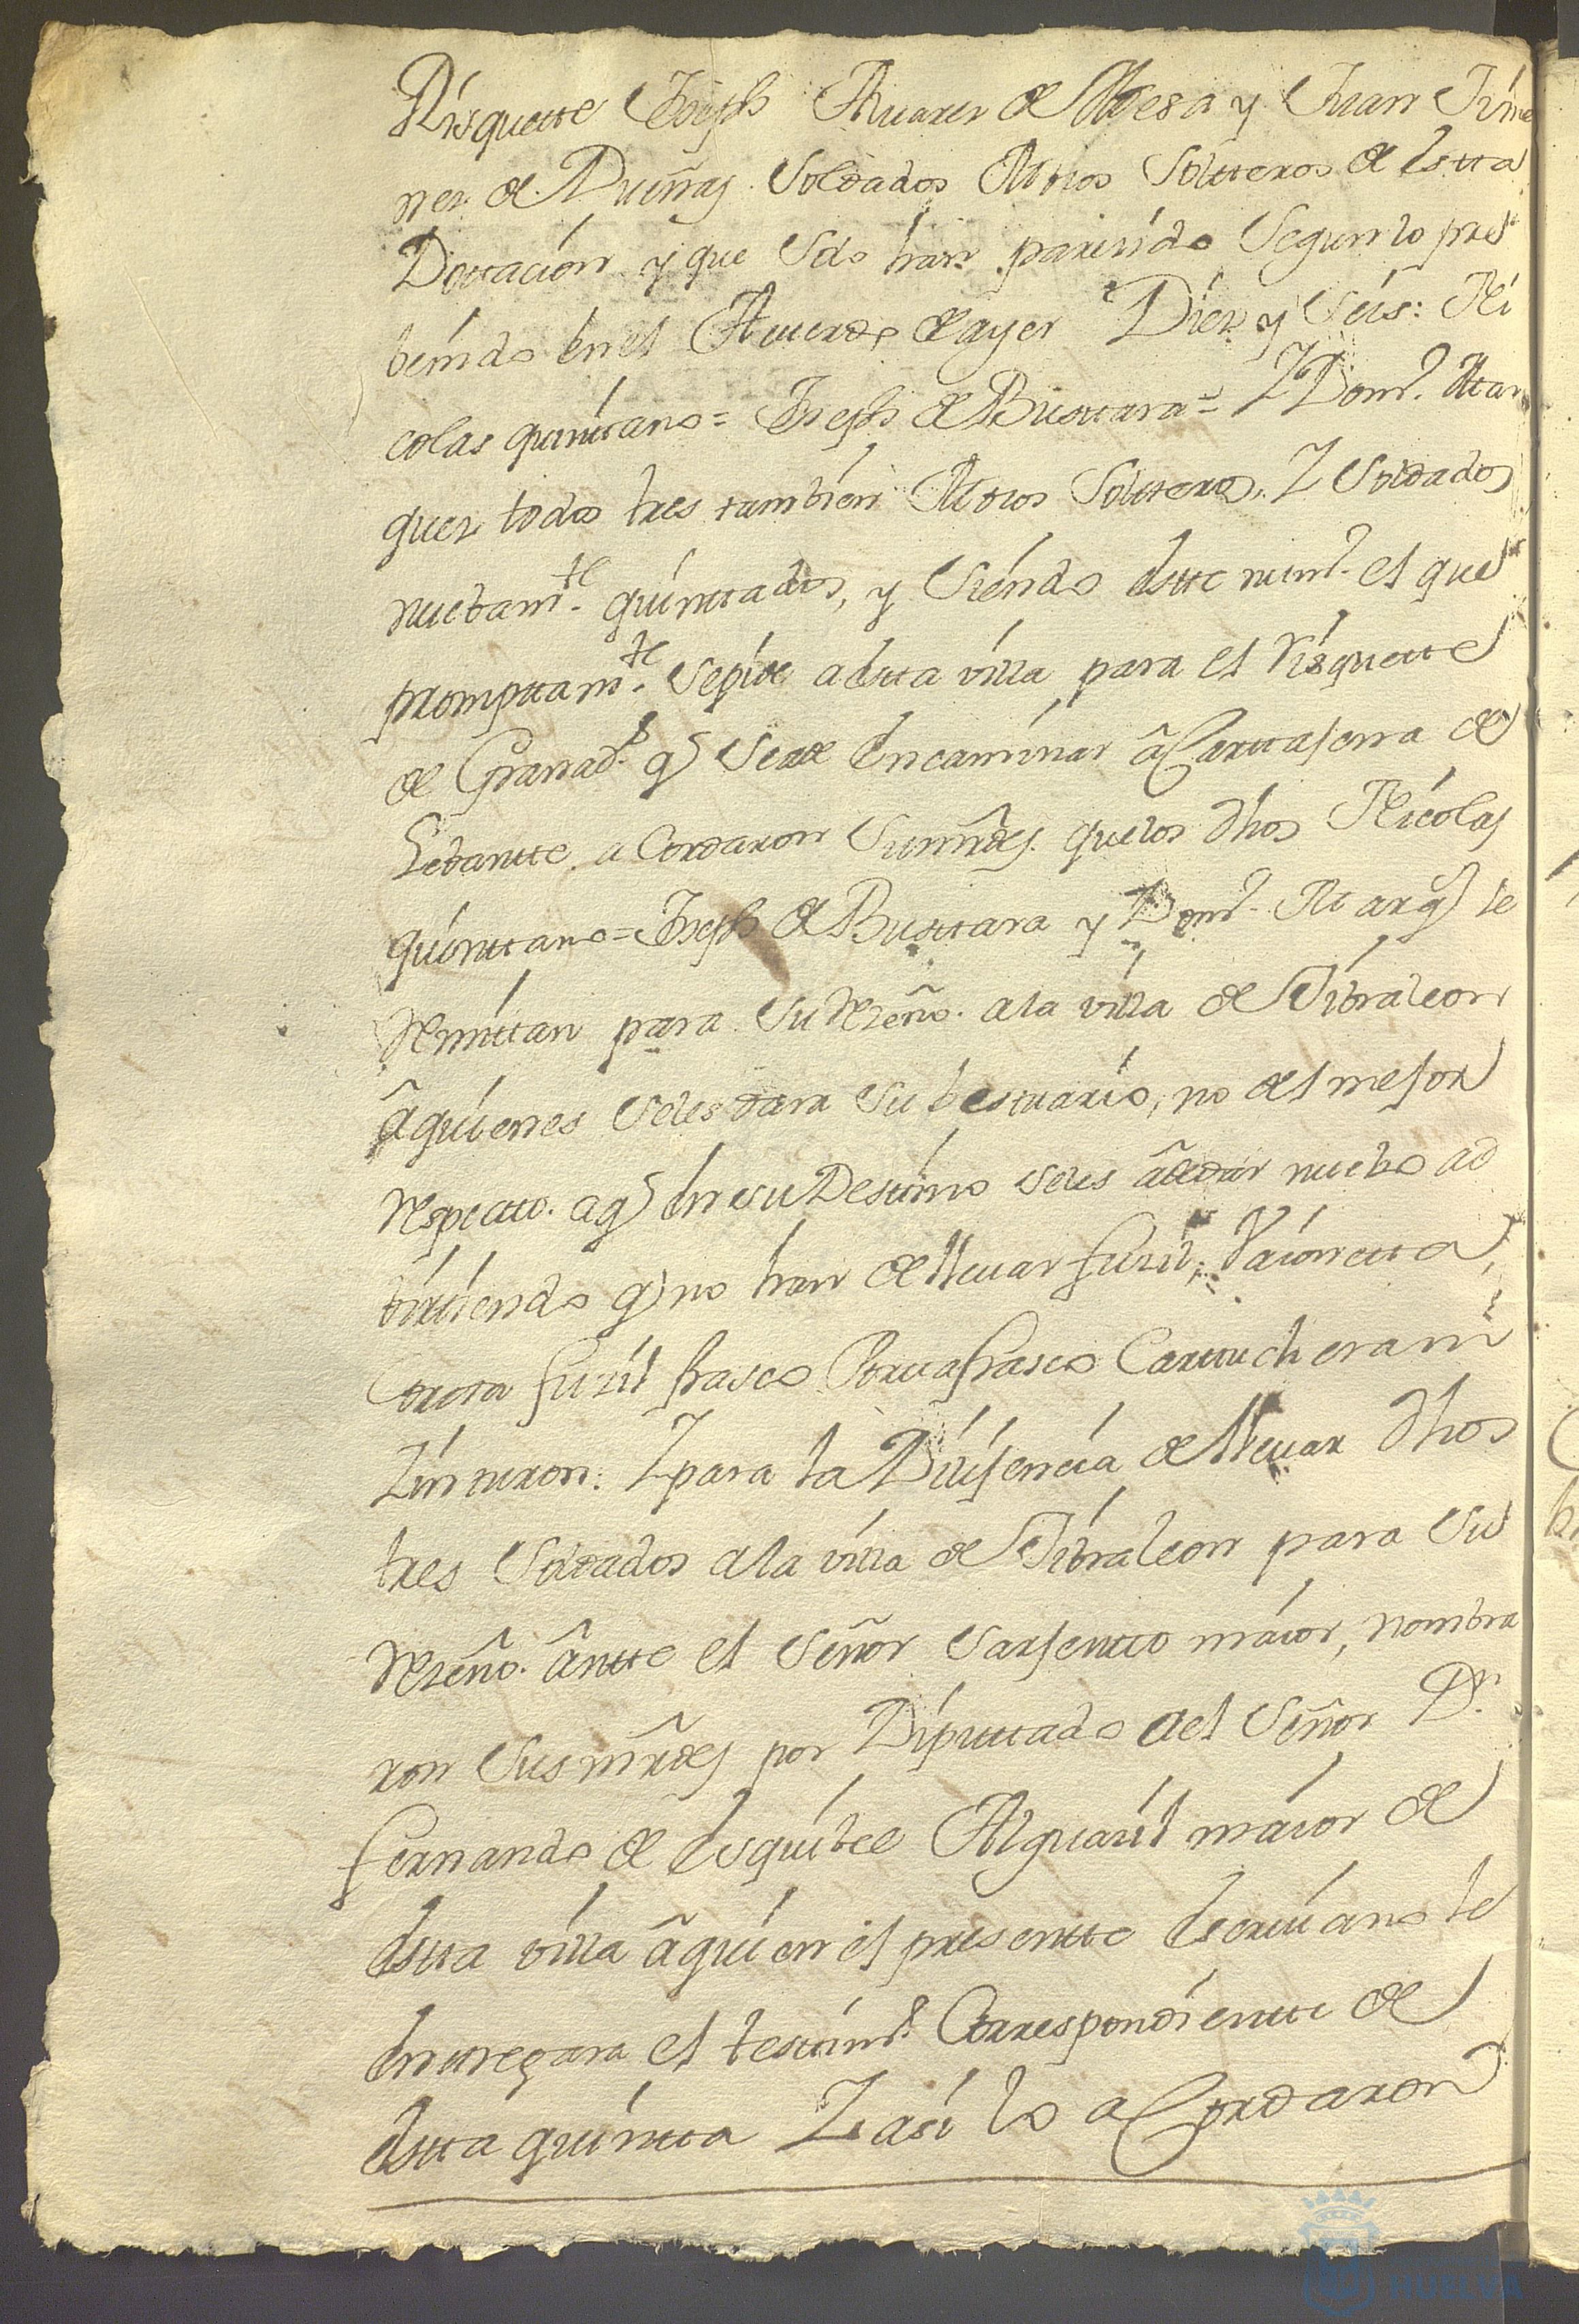 Risquette Joseph Aluarez de Mesa y Juan Jime
nez de Dueñas Soldados Mozos Solteros de Estta
Dottacion y que Solo han parezido Segun lo pre
benido en el Acuerdo de ayer Diez y Seis: Ni
colas quinttano = Joseph de Busttara = Y Domo. Mar
quez todos tres tambien Mozos Soltteros, Y Soldados
nuebamte. quinttados, y Siendo Estte numo. el que
prompttamte. Sepide a Estta villa para el Risquette
de Granads. q Se a de Encaminar â Carttajena de
Lebantte, a Cordaron Sus mrdes. que los dhos Nicolas
quinttano = Joseph de Busttara y Domo. Marqz se
Remittan para Su Rezeño. a la villa de Jibraleon
â quienes Seles dara Su bestuario, no del mejor
respectto. aq En su Destino Seles â de dar nuebo ad
birtiendo q no han de lleuar fuzil, Vaionetta,
Portta fuzil frasco Porttafrasco Carttuchera ni
Zinturon: Y para la Dilijencia de lleuar dhos
tres Soldados a la villa de Jibraleon para Su
Rezeño. ântte el Señor Sarjentto maior, nombra
ron Sus mrdes por Diputtado a el Señor Dn.
fernando de Esquibel Alguazil maior de
Estta villa â quien el presentte Escriuano le
Enttregara el testimo. Correspondientte de
Estta quintta Y asi lo a Cordaron
HUELVA